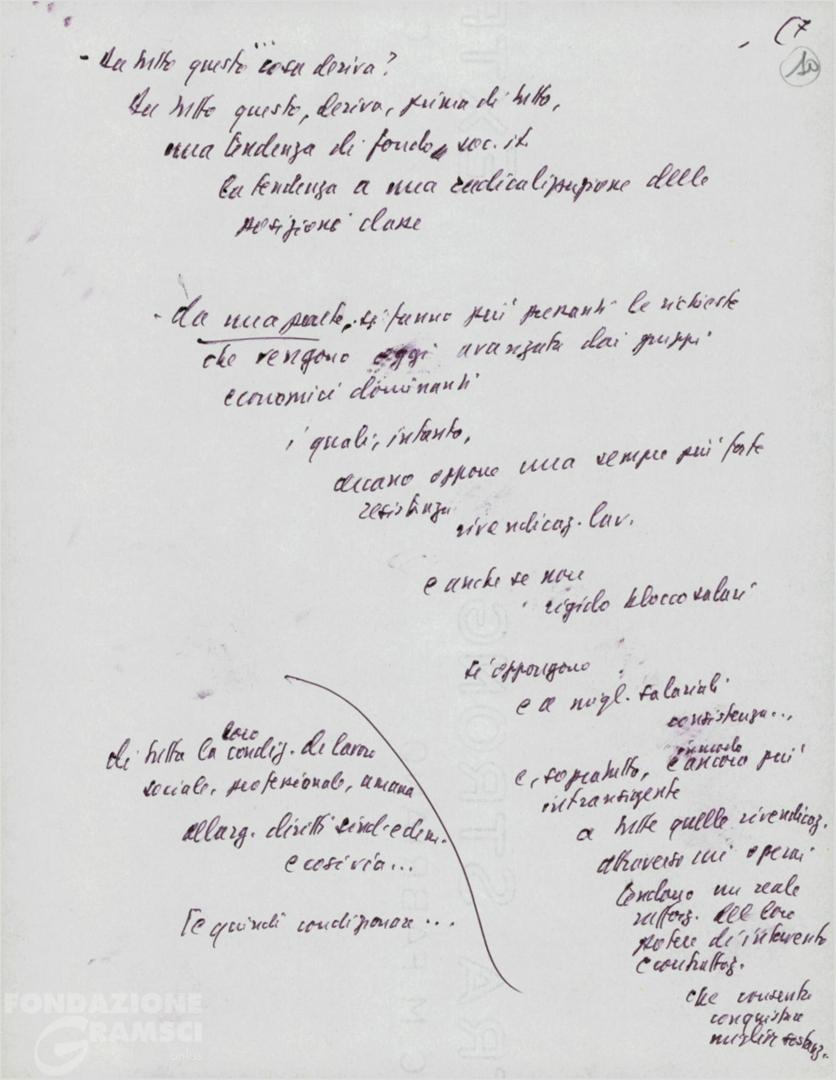 (7
10
- Da tutto questo cosa deriva?
Da tutto questo, deriva, prima di tutto,
una tendenza di fondo soc. it.
la tendenza a una radicalizzazione delle
posizioni classe
- da una parte, si fanno più pesanti le richieste
che vengono oggi avanzate dai gruppi
economici dominanti
i quali, intanto,
oppone una sempre più forte
resistenza
rivendicaz. lav.
e anche se non
rigido blocco salari
si oppongono
e a migl. salariali
consistenza...
e, sopratutto, in modo e ancora più
intransigente
a tutte quelle rivendicaz.
attraverso cui operai
tendono un reale
rafforz. del loro
potere di intervento
e contrattaz.
che consenta
conquistare
migliır sostanz.
di tutta la loro condiz. di lavoro
sociale, professionale, umana
allarg. diritti sind. e dem.
e così via...
[e quindi condizionare...
FONDAZIONE
GRAMSCI
onlus